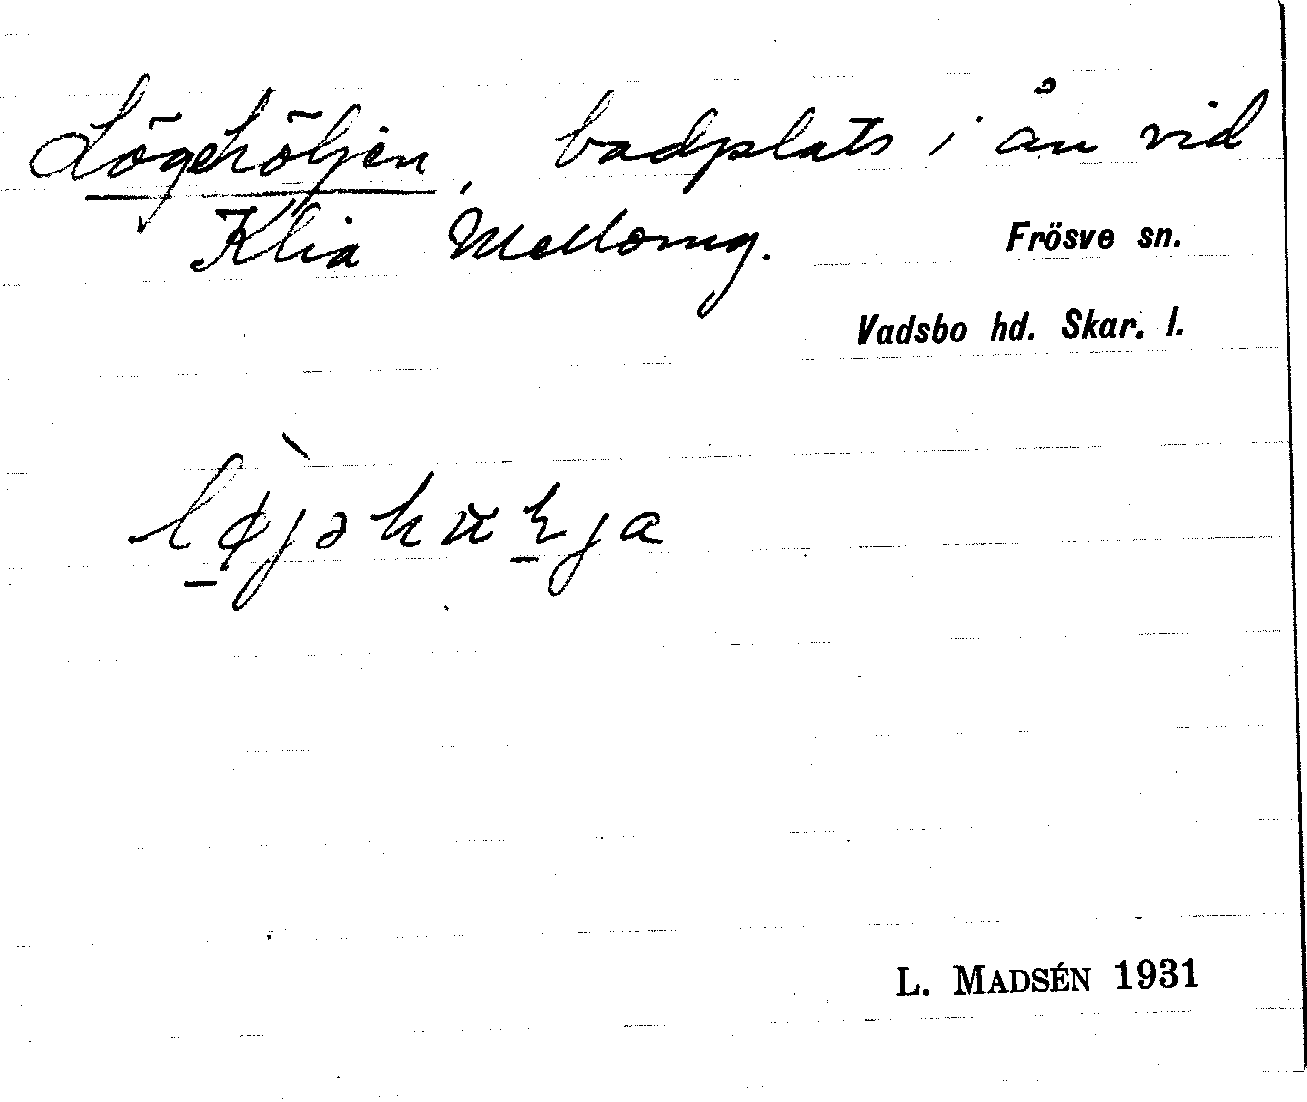 Lögehöljen, badplats i ån vid
Klia Mellomg. Frösve sn.
Vadsbo hd. Skar. l.
L. MADSÉN 1931